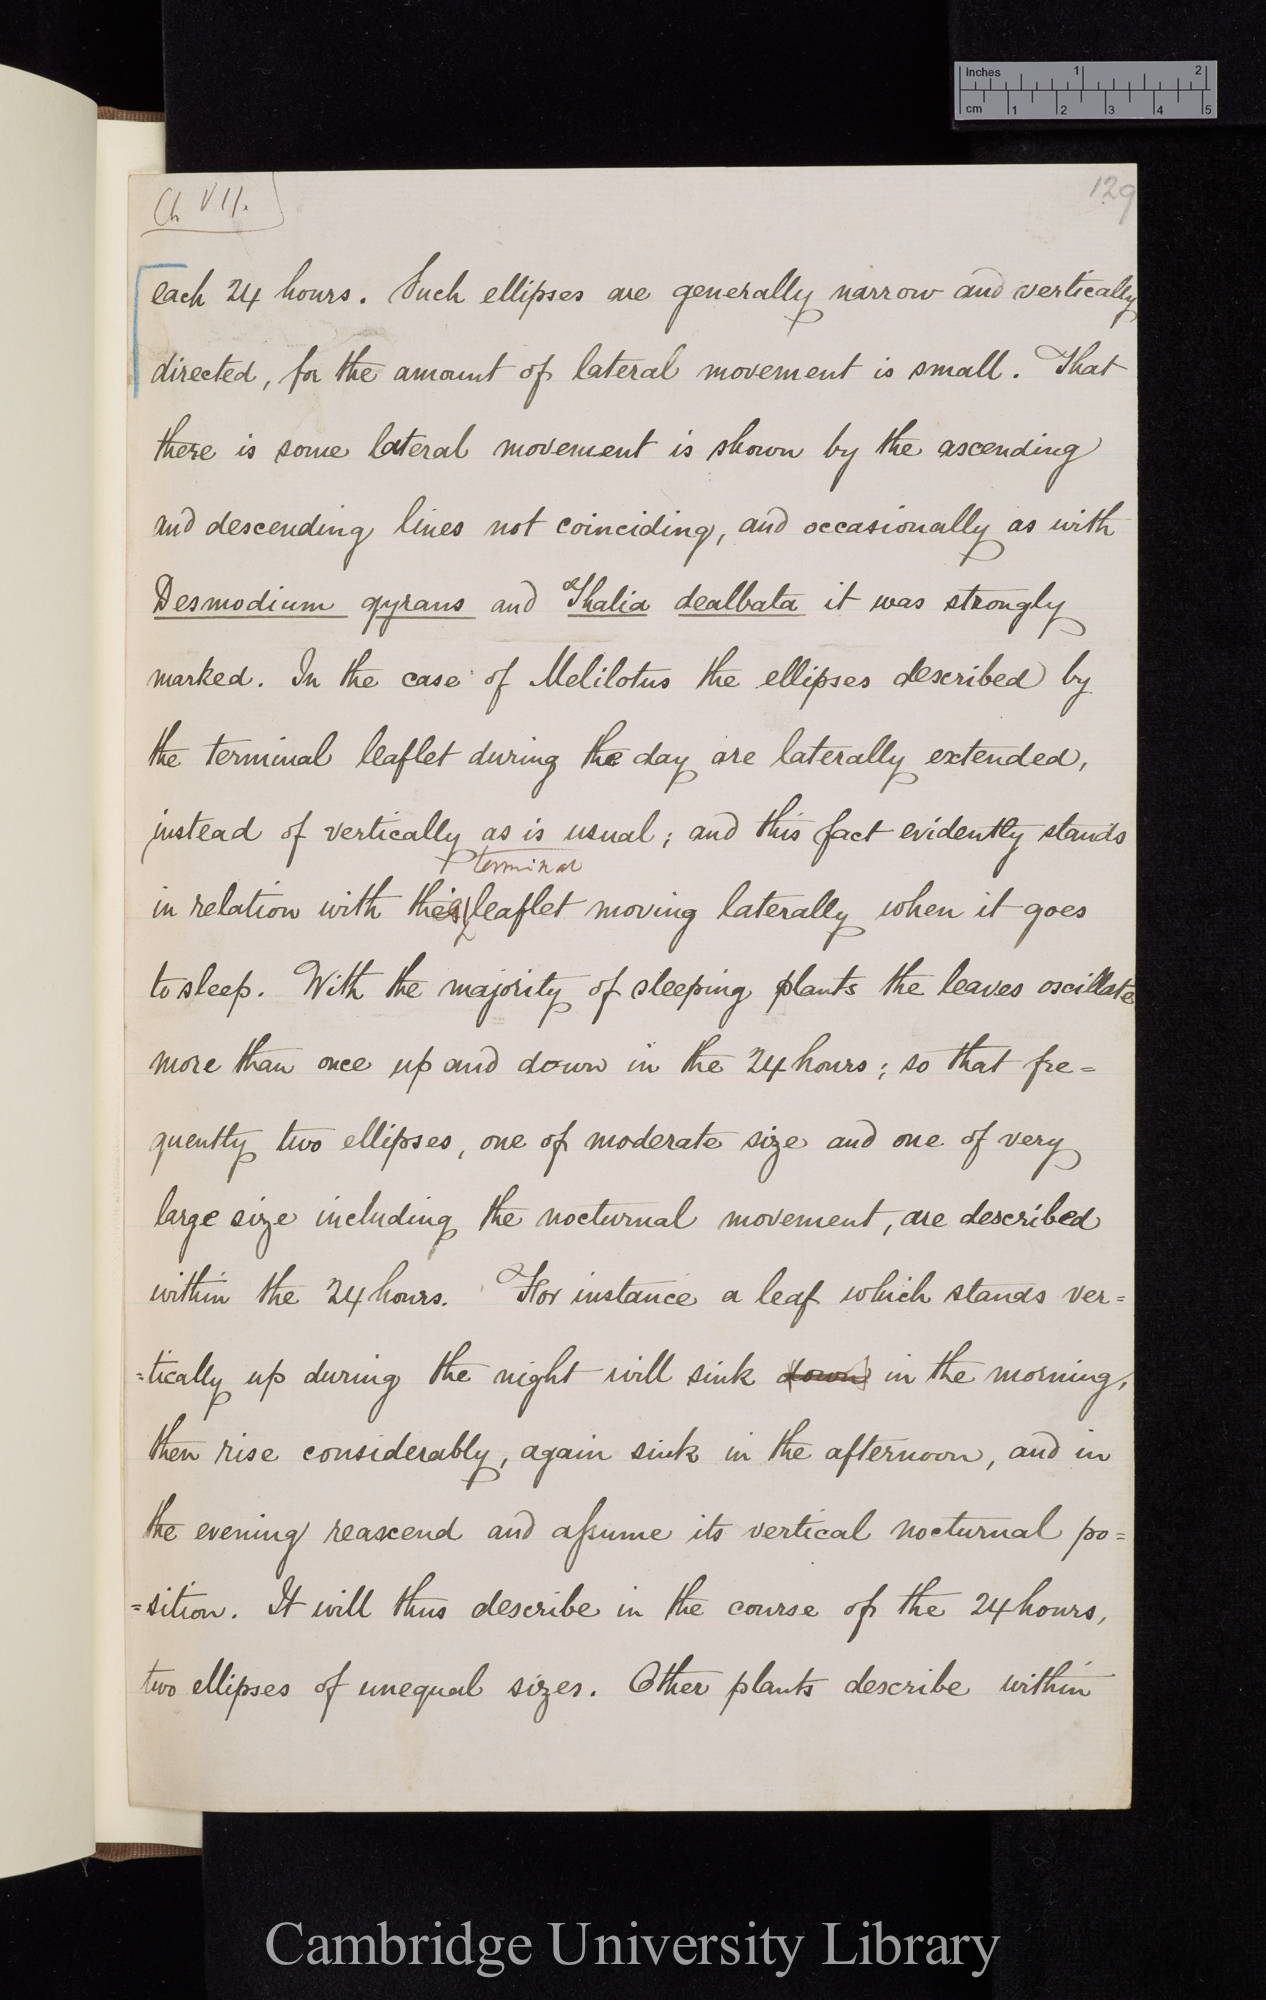 Inches 1 2
cm 1 2 3 4 5
Ch VII.
129
each 24 hours. Such ellipses are generally narrow and vertically
directed, for the amount of lateral movement is small. That
there is some lateral movement is shown by the ascending
and descending lines not coinciding, and occasionally as with
Desmodium gyrans and Thalia dealbata it was strongly
marked. In the case of Melilotus the ellipses described by
the terminal leaflet during the day are laterally extended,
instead of vertically as is usual; and this fact evidently stands
terminal
in relation with the leaflet moving laterally when it goes
to sleep. With the majority of sleeping plants the leaves oscillate
more than once up and down in the 24 hours; so that fre=
quently two ellipses, one of moderate size and one of very
large size including the nocturnal movement, are described
within the 24 hours. For instance a leaf which stands ver=
=tically up during the night will sink down in the morning,
then rise considerably, again sink in the afternoon, and in
the evening reascend and assume its vertical nocturnal po=
=sition. It will thus describe in the course of the 24 hours,
two ellipses of unequal sizes. Other plants describe within
Cambridge University Library